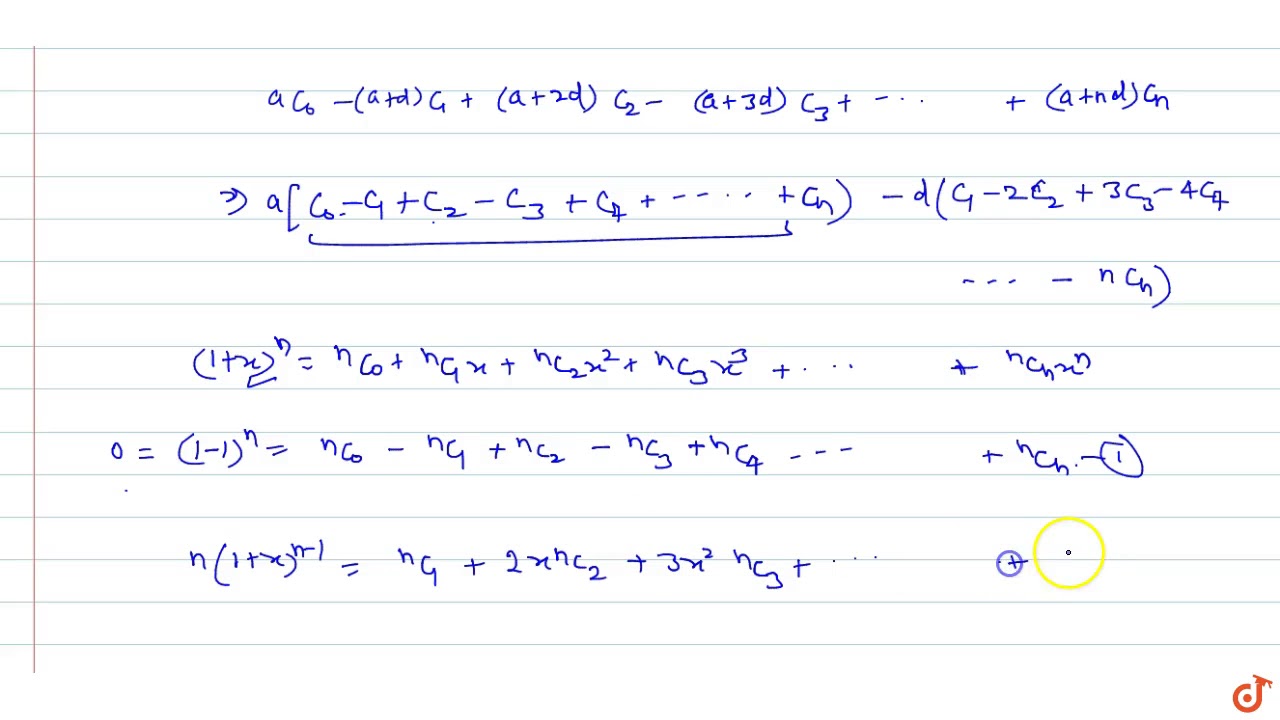 a C₀ - (a+d) C₁ + (a+2d) C₂ - (a+3d) C₃ + - ‥ + (a+nd) Cₙ
⇒ a[C₀ - C₁ + C₂ - C₃ + C₄ + - - ‥ + Cₙ) - d(C₁ - 2C₂ + 3C₃ - 4C₄
- - - - nCₙ)
(1+x)ⁿ = ⁿC₀ + ⁿC₁x + ⁿC₂x² + ⁿC₃x³ + ... + ⁿCₙxⁿ
0 = (1-1)ⁿ = ⁿC₀ - ⁿC₁ + ⁿC₂ - ⁿC₃ + ⁿC₄ - - - + ⁿCₙ - ①
n(1+x)ⁿ⁻¹ = ⁿC₁ + 2xⁿC₂ + 3x² ⁿC₃ + ... +